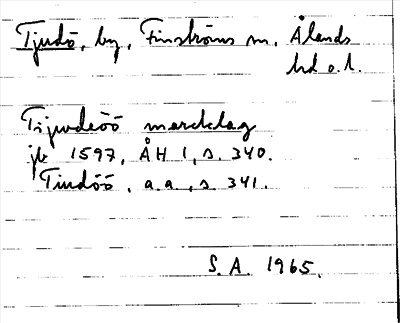 Tjudö, by, Finströms sn. Ålands
hd o. l.
Tijudeöö marcklag
jb 1597, ÅH 1, s. 340.
Tiudöö, a.a., s. 341.
S. A. 1965.